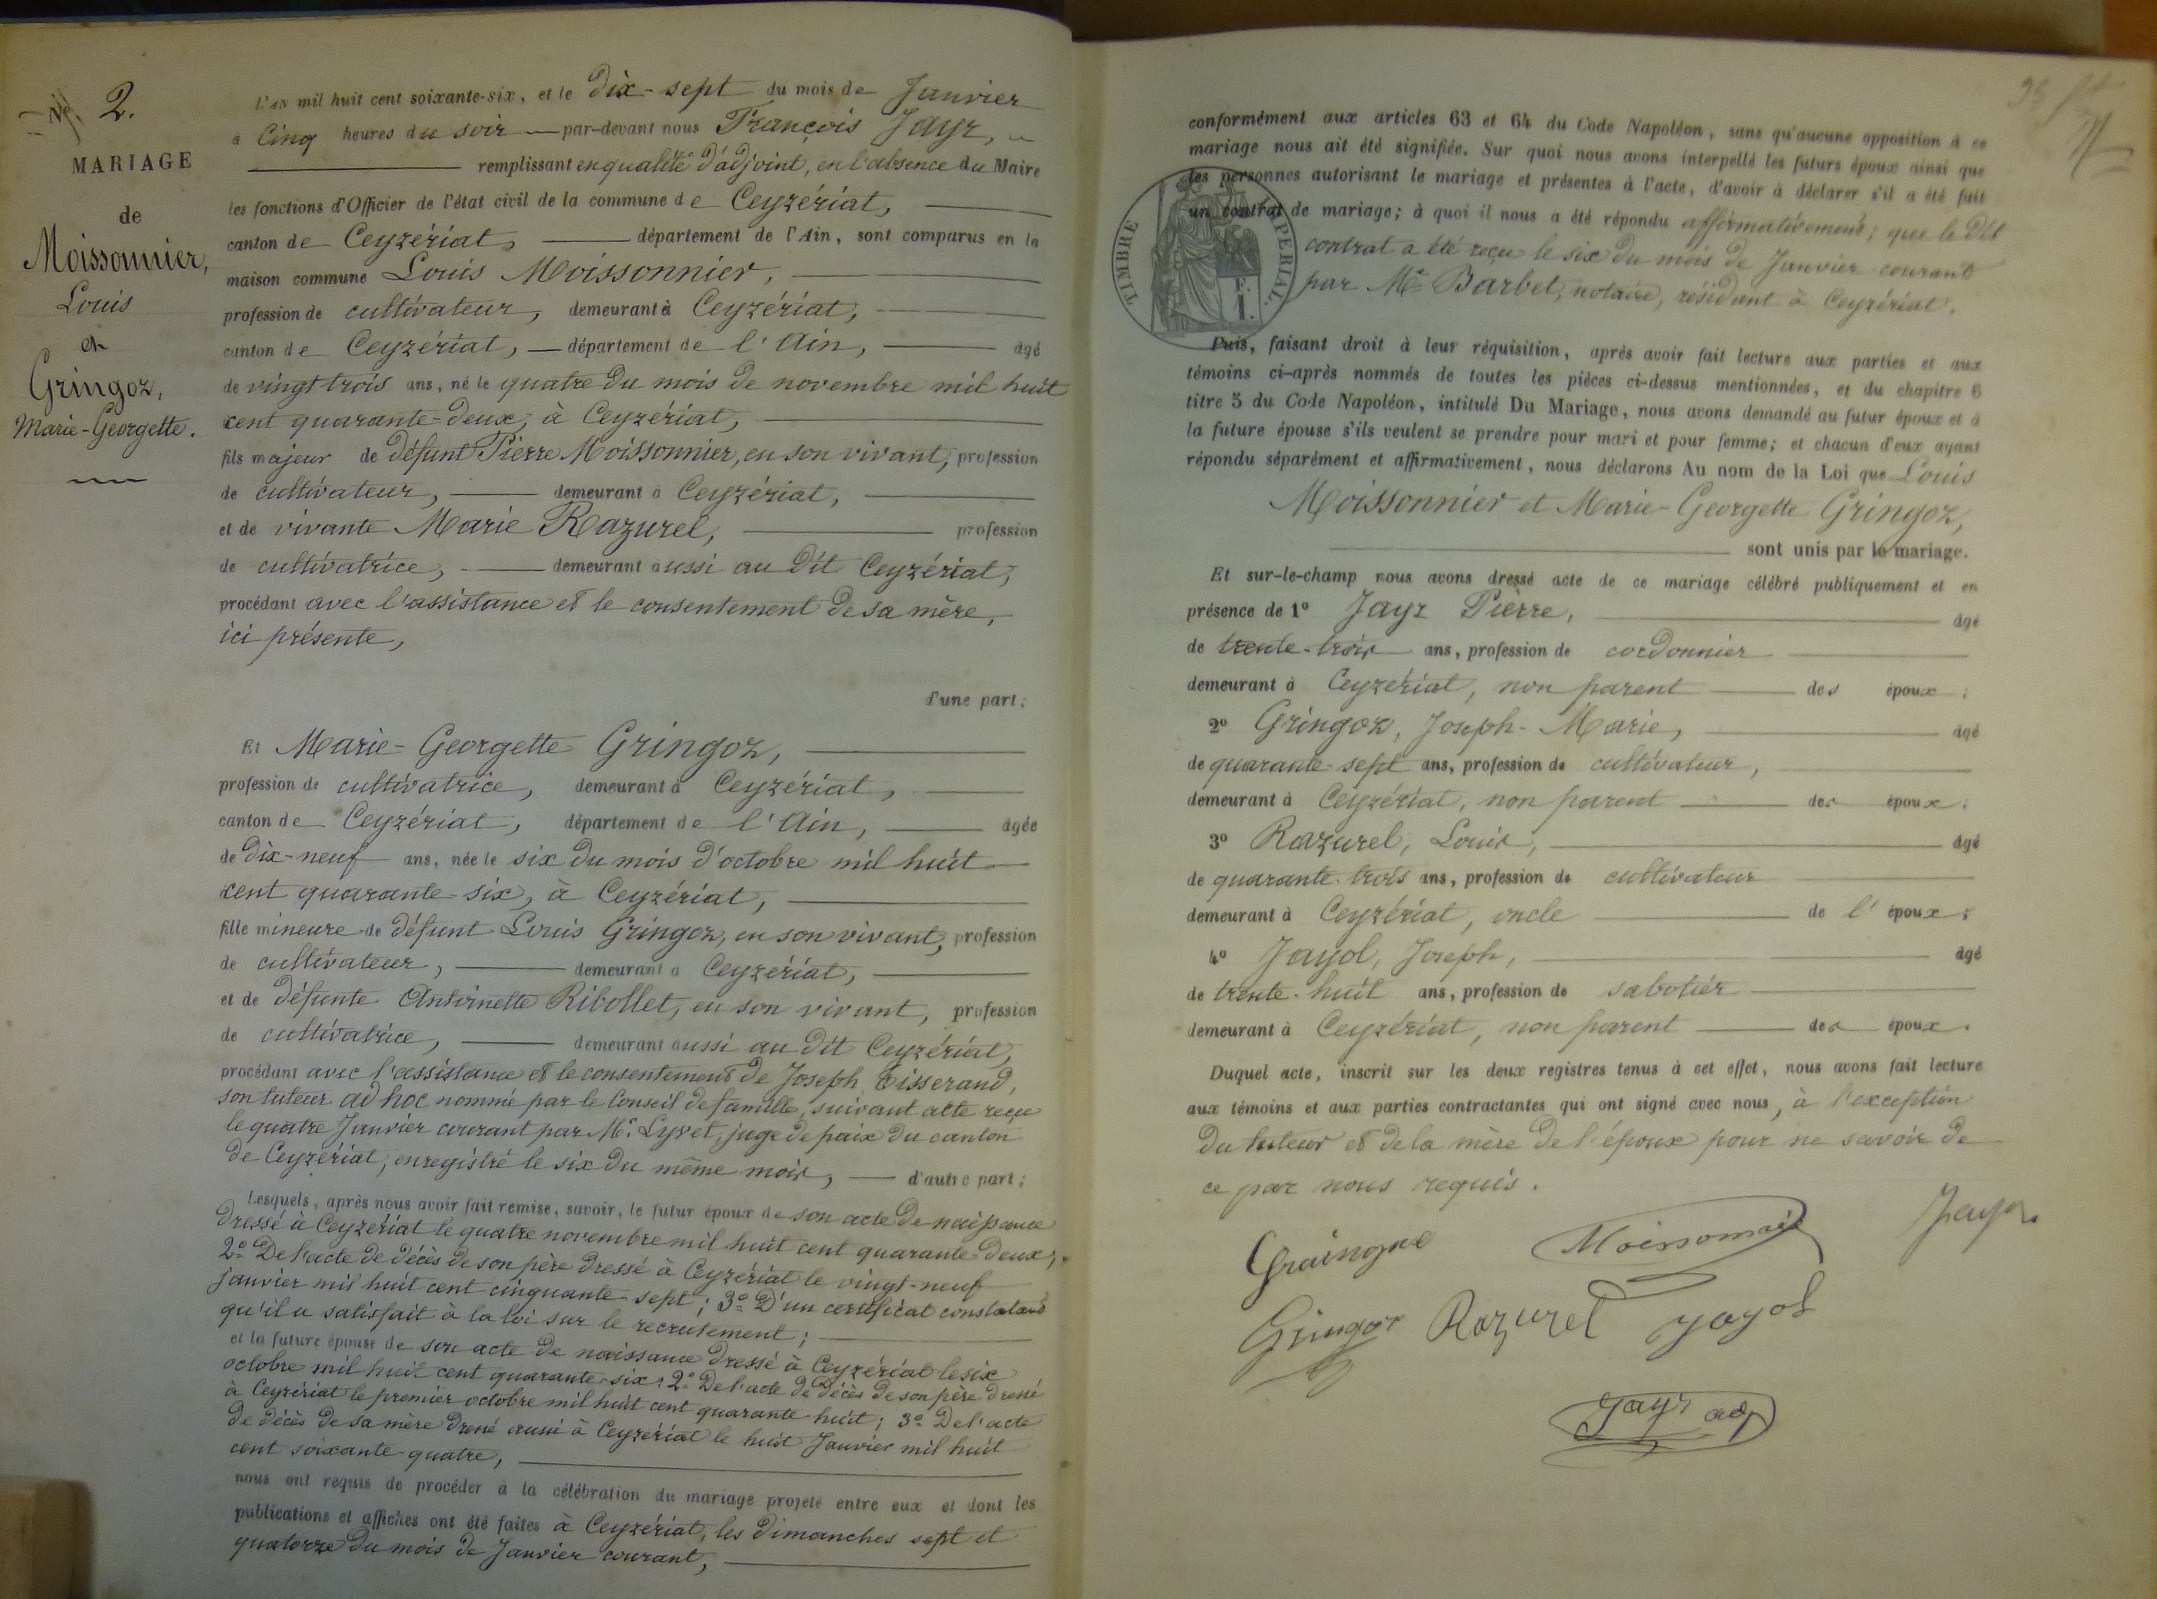 N° 2.
MARIAGE
de
Moissonnier,
Louis
et
Gringoz,
Marie-Georgette.
L'AN mil huit cent soixante-six, et le dix-sept du mois de Janvier
à cinq heures du soir par-devant nous François Jayr,
remplissant en qualité d'adjoint, en l'absence du Maire
les fonctions d'Officier de l'état civil de la commune de Ceyzériat,
canton de Ceyzériat, département de l'Ain, sont comparus en la
maison commune Louis Moissonnier,
profession de cultivateur, demeurant à Ceyzériat,
canton de Ceyzériat, département de l'Ain, âgé
de vingt trois ans, né le quatre du mois de novembre mil huit
cent quarante-deux, à Ceyzériat,
fils majeur de défunt Pierre Moissonnier, en son vivant, profession
de cultivateur, demeurant à Ceyzériat,
et de vivante Marie Razurel, profession
de cultivatrice, demeurant aussi au dit Ceyzériat,
procédant avec l'assistance et le consentement de sa mère,
ici présente,
d'une part;
Et Marie-Georgette Gringoz,
profession de cultivatrice, demeurant à Ceyzériat,
canton de Ceyzériat, département de l'Ain, âgée
de dix-neuf ans, née le six du mois d'octobre mil huit
cent quarante-six, à Ceyzériat,
fille mineure de défunt Louis Gringoz, en son vivant, profession
de cultivateur, demeurant à Ceyzériat,
et de défunte Antoinette Ribollet, en son vivant, profession
de cultivatrice, demeurant aussi au dit Ceyzériat,
procédant avec l'assistance et le consentement de Joseph Tisserand,
son tuteur ad hoc nommé par le Conseil de famille, suivant acte reçu
le quatre Janvier courant par Mr. Lyvet, juge de paix du canton
de Ceyzériat, enregistré le six du même mois, d'autre part;
Lesquels, après nous avoir fait remise, savoir, le futur époux de son acte de naissance
dressé à Ceyzériat le quatre novembre mil huit cent quarante-deux;
2° De l'acte de décès de son père dressé à Ceyzériat le vingt-neuf
janvier mil huit cent cinquante-sept; 3° D'un certificat constatant
qu'il a satisfait à la loi sur le recrutement;
et la future épouse de son acte de naissance dressé à Ceyzériat le six
octobre mil huit cent quarante-six; 2° De l'acte de décès de son père dressé
à Ceyzériat le premier octobre mil huit cent quarante-huit; 3° De l'acte
de décès de sa mère dressé aussi à Ceyzériat le huit Janvier mil huit
cent soixante-quatre,
nous ont requis de procéder à la célébration du mariage projeté entre eux et dont les
publications et affiches ont été faites à Ceyzériat, les dimanches sept et
quatorze du mois de Janvier courant,
conformément aux articles 63 et 64 du Code Napoléon, sans qu'aucune opposition à ce
mariage nous ait été signifiée. Sur quoi nous avons interpellé les futurs époux ainsi que
les personnes autorisant le mariage et présentes à l'acte, d'avoir à déclarer s'il a été fait
un contrat de mariage; à quoi il nous a été répondu affirmativement; que le dit
contrat a été reçu le six du mois de Janvier courant
par Me Barbet, notaire, résidant à Ceyzériat.
TIMBRE IMPERIAL.
F.
1.
Puis, faisant droit à leur réquisition, après avoir fait lecture aux parties et aux
témoins ci-après nommés de toutes les pièces ci-dessus mentionnées, et du chapitre 6
titre 5 du Code Napoléon, intitulé Du Mariage, nous avons demandé au futur époux et à
la future épouse s'ils veulent se prendre pour mari et pour femme; et chacun d'eux ayant
répondu séparément et affirmativement, nous déclarons Au nom de la Loi que Louis
Moissonnier et Marie-Georgette Gringoz,
sont unis par le mariage.
Et sur-le-champ nous avons dressé acte de ce mariage célébré publiquement et en
présence de 1° Jayr Pierre, âgé
de trente-trois ans, profession de cordonnier
demeurant à Ceyzériat, non parent des époux;
2° Gringoz, Joseph-Marie, âgé
de quarante-sept ans, profession de cultivateur,
demeurant à Ceyzériat, non parent des époux;
3° Razurel, Louis, âgé
de quarante-trois ans, profession de cultivateur
demeurant à Ceyzériat, oncle de l'époux;
4° Jayol, Joseph, âgé
de trente-huit ans, profession de sabotier
demeurant à Ceyzériat, non parent des époux.
Duquel acte, inscrit sur les deux registres tenus à cet effet, nous avons fait lecture
aux témoins et aux parties contractantes qui ont signé avec nous, à l'exception
du tuteur et de la mère de l'époux pour ne savoir de
ce par nous requis.
Moissonnier
Jayr
Gringoz Razurel Jayol
Jayr adj